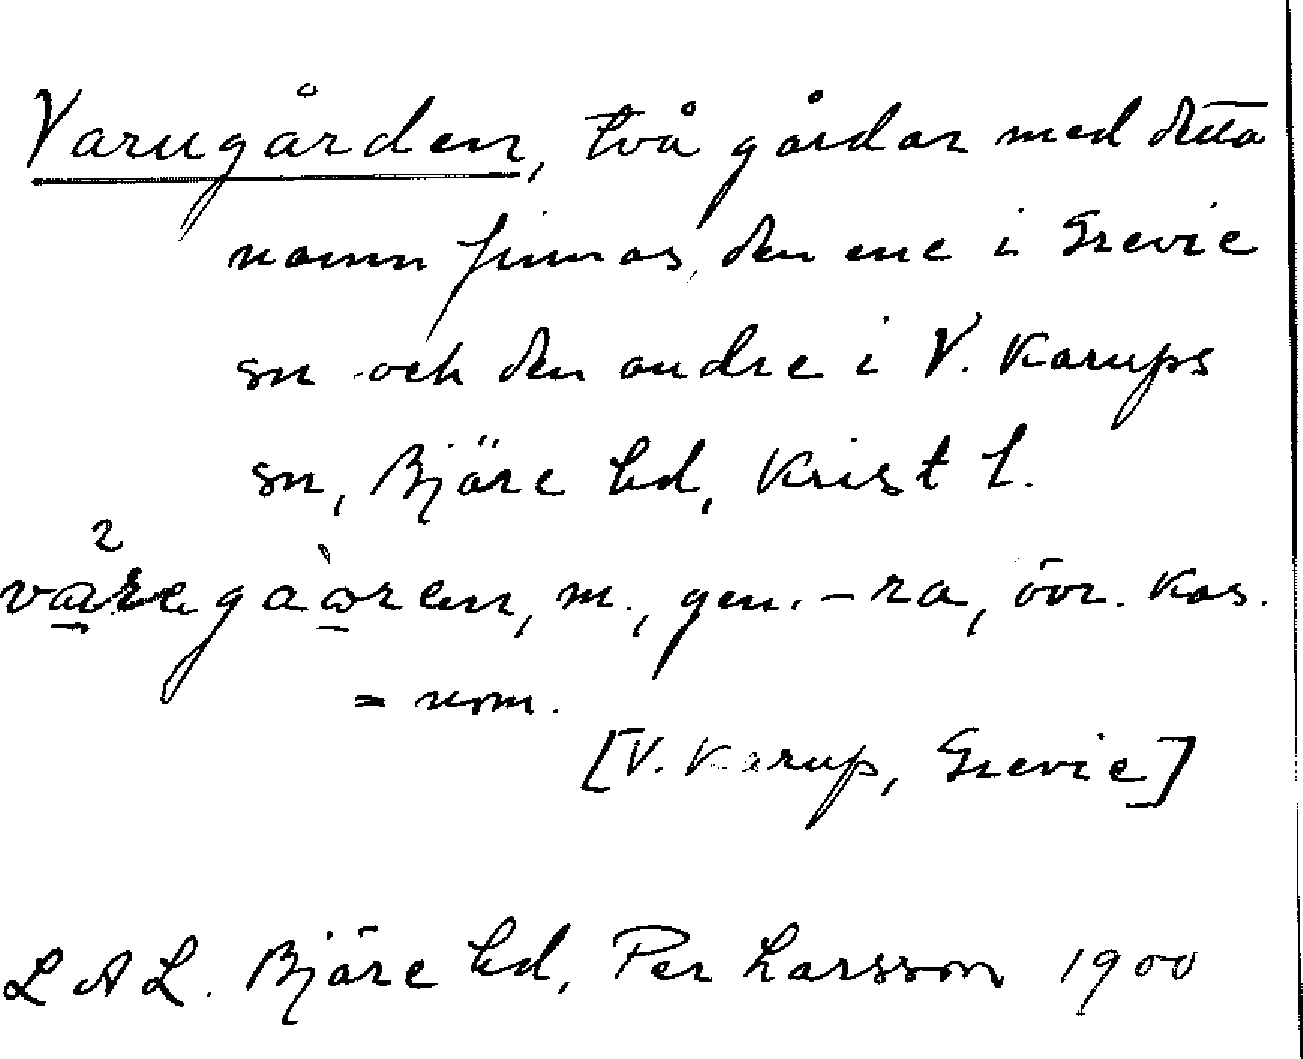 Varugården, två gårdar med detta
namn finnas, den ene i Grevie
sn och den andre i V. Karups
sn, Bjäre hd, Krist l.
m., gen. -ra, övr. kas.
= nom.
[V. Karup, Grevie]
LAL. Bjäre hd, Per Larsson 1900